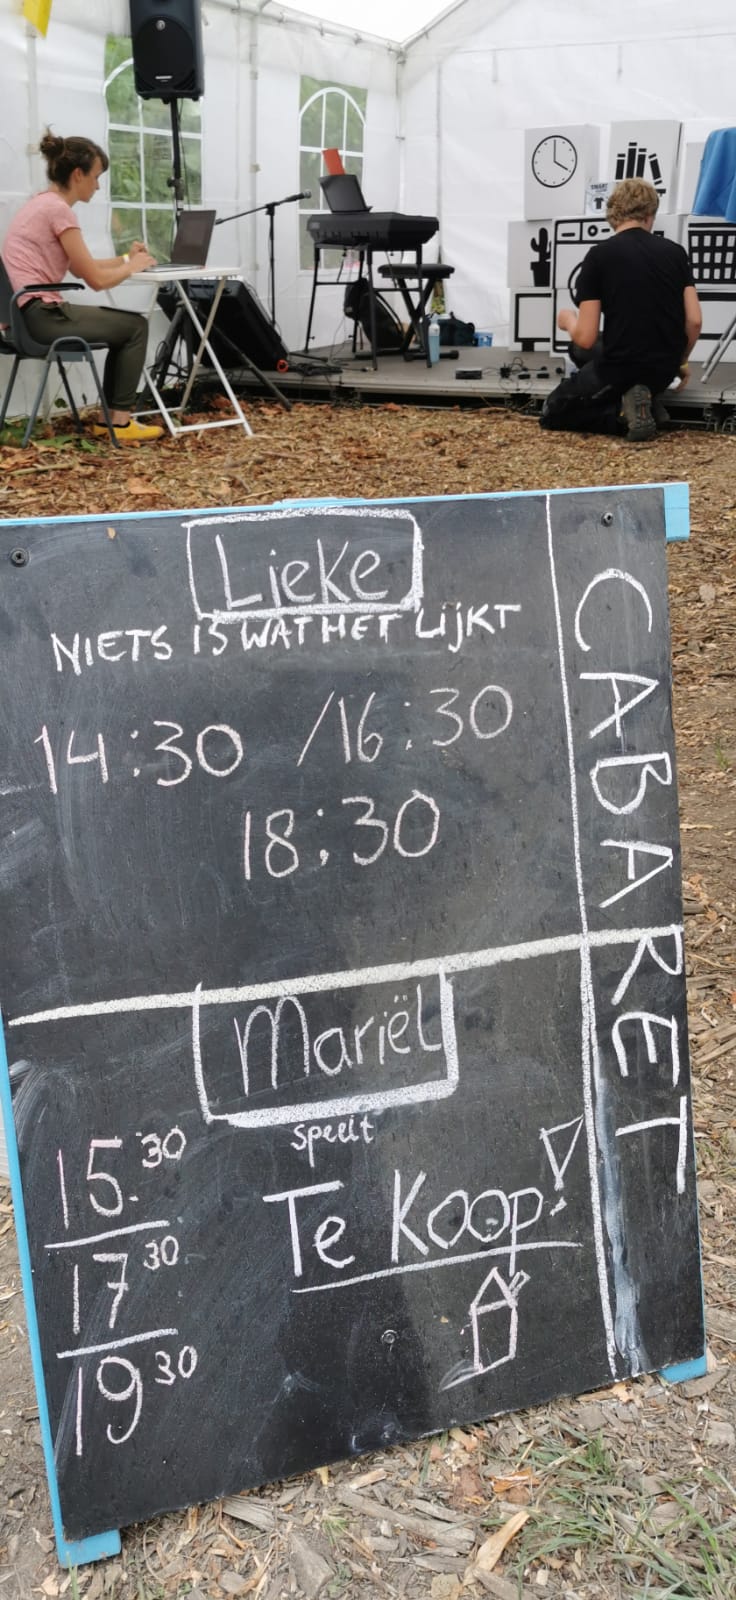 Lieke
NIETS IS WAT HET LIJKT
14:30 /16:30
18:30
CABARET
Mariël
speelt
Te Koop!
15.30
17 30
19 30